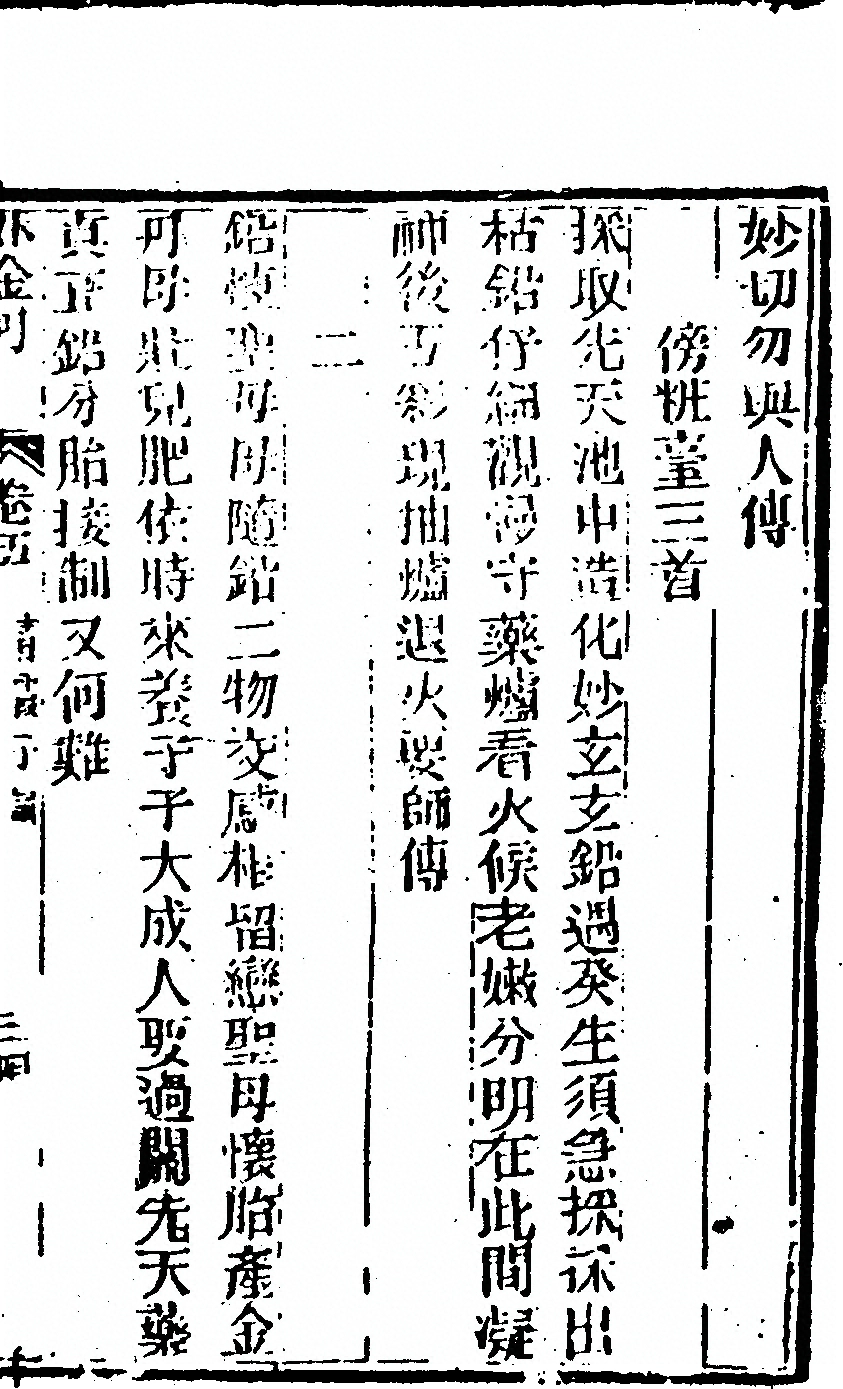 妙切勿與人傳
傍粧臺三首
採取先天池中造化妙玄玄鉛遇癸生須急採採出
枯鉛仔細觀謾守藥爐看火候老嫩分明在此間凝
神後五彩現抽爐退火要師傳
二
鉛煉聖母母隨鉛二物交感相留戀聖母懷胎產金
可母壯兒肥依時來養子子大成人娶過關先天藥
真正鉛分胎接制又何難
卷五
三